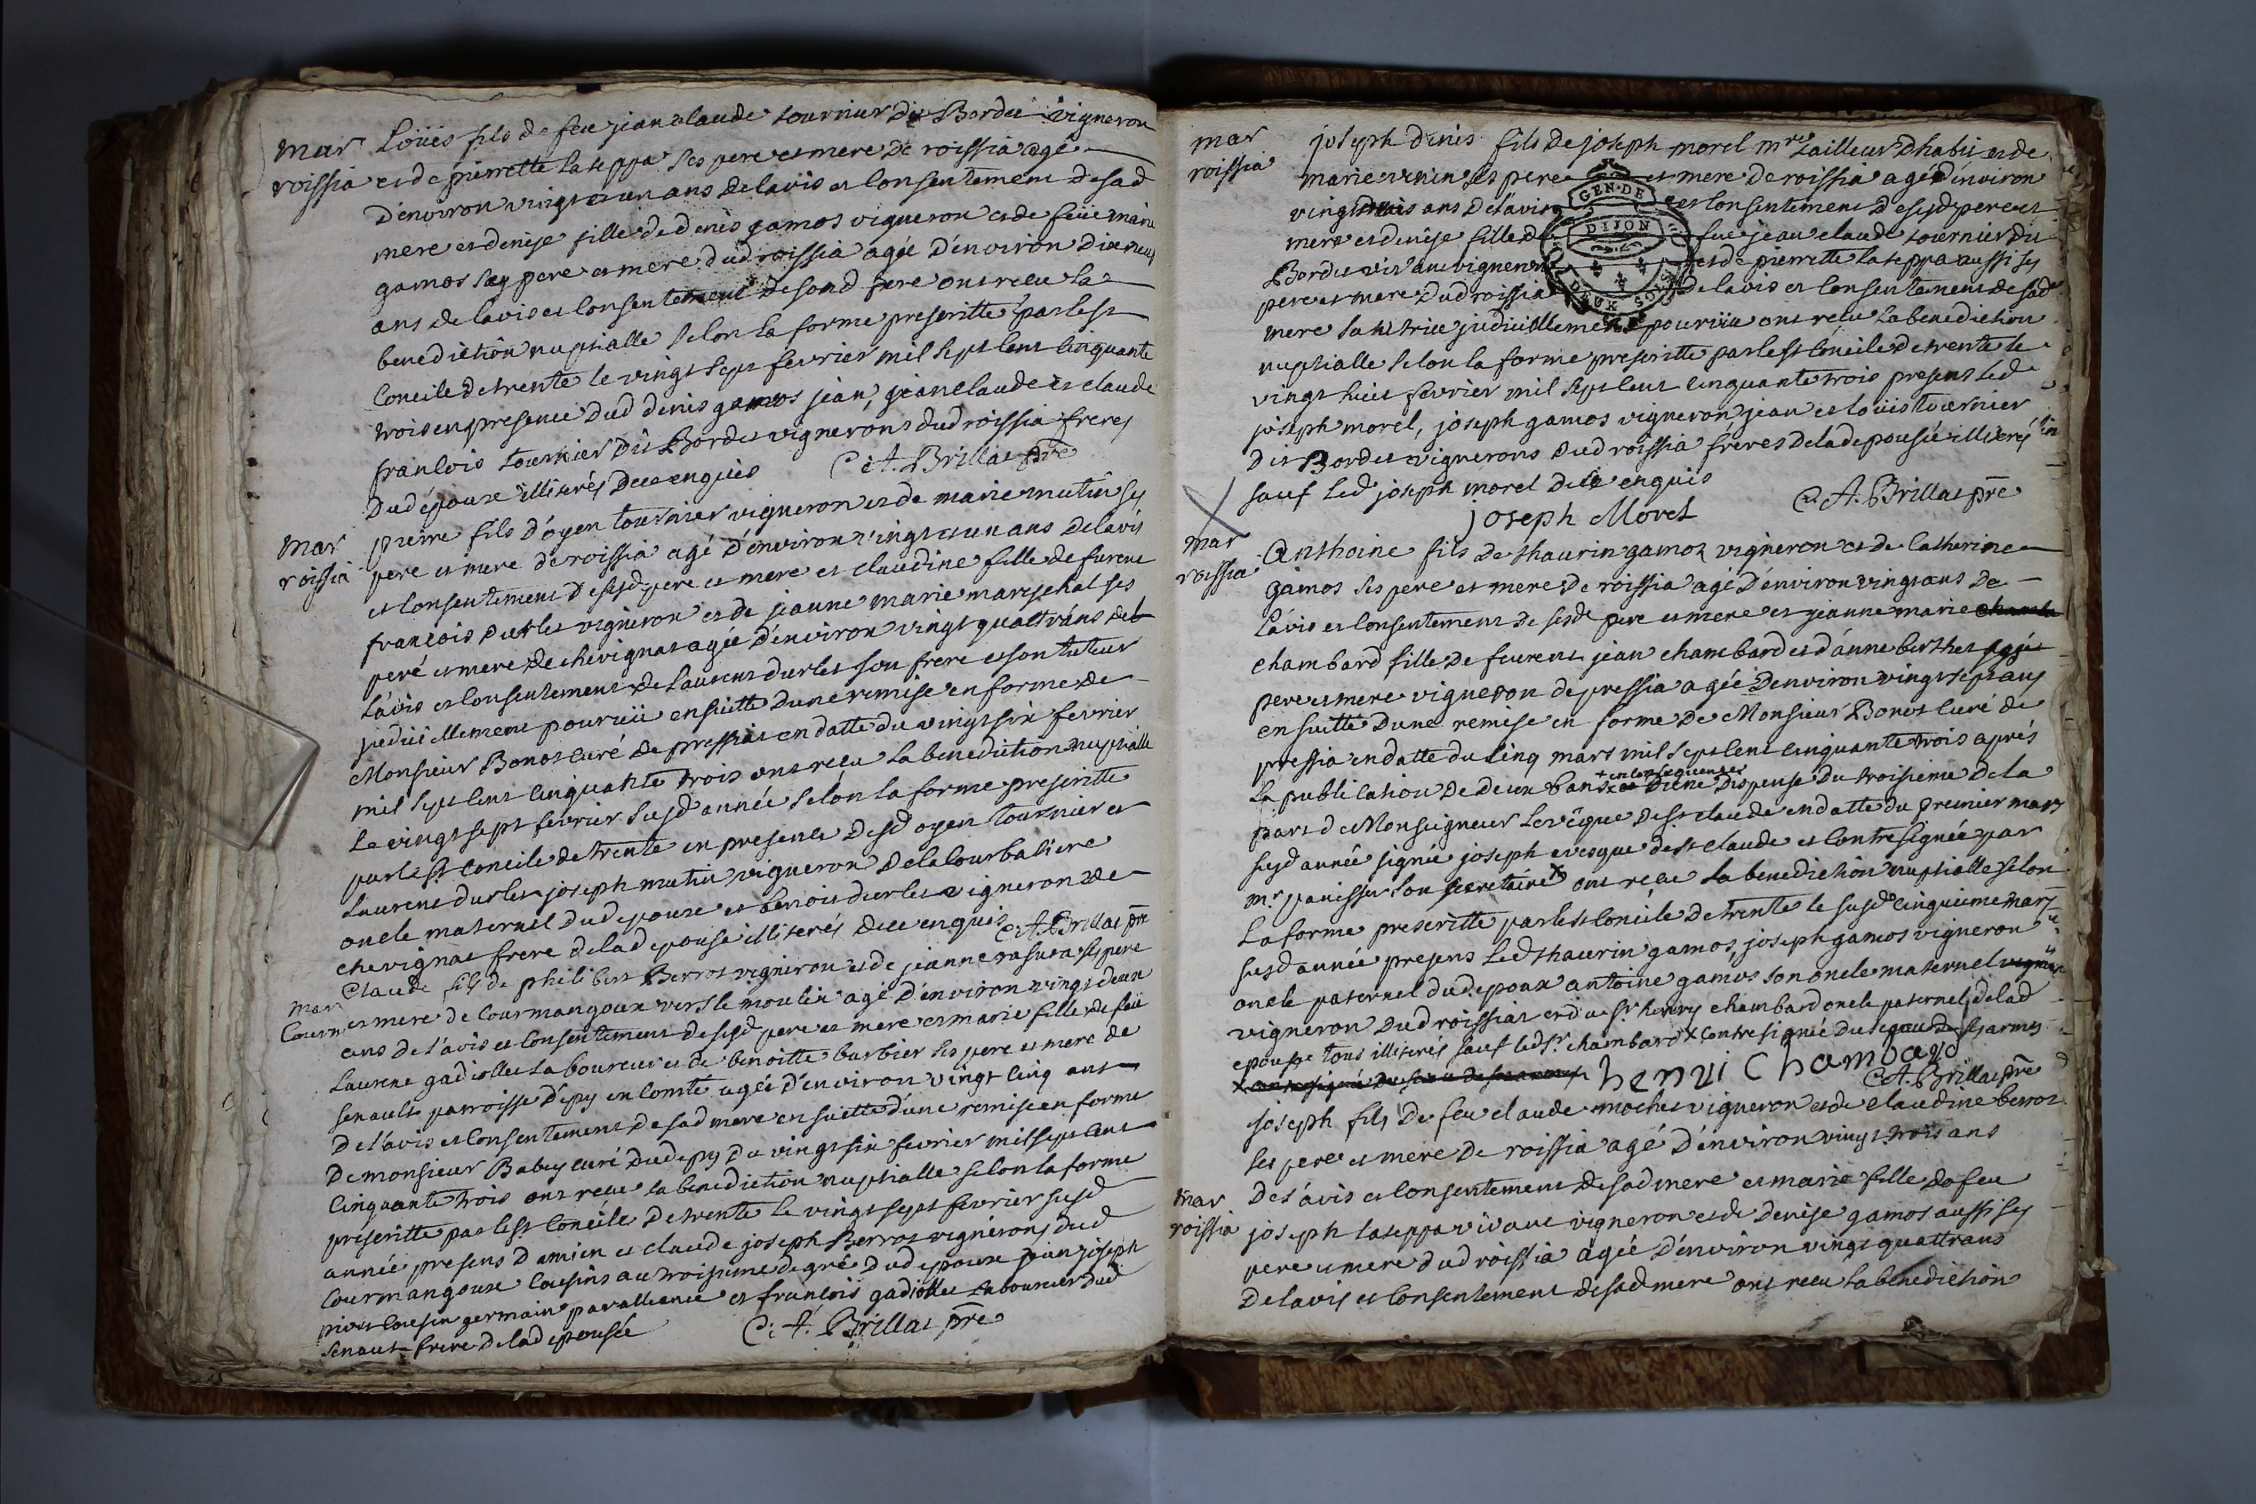 mar
roissia
Loüis fils de feu jean claude tournier dit Bordet vigneron
et de pierrette laseppa ses pere et mere de roissia agé
d'environ vingt et un ans de lavis et consentement de sad
mere et denise fille de denis gamos vigneron et de feüe marie
gamos ses pere et mere dud roissia agée d'environ dix neuf
ans de lavis et consentement de sond pere ont receu la
benediction nuptialle selon la forme prescritte par le st
Concile de trente le vingt sept fevrier mil sept cent cinquante
trois en presence dud denis gamos jean, jean claude et claude
francois tournier dit Bordet vignerons dud roissia freres
dud époux illiterés de ce enquis C: A. Brillat pre
mar
roissia
pierre fils d'oyen tournier vigneron et de marie mutin ses
pere et mere de roissia agé d'environ vingt et un ans de lavis
et consentement de sesd pere et mere et claudine fille de furent
francois durlet vigneron et de jeanne marie mareschal ses
peré et mere de chevignat agée d'environ vingt quattr'ans de
l'avis et consentement de laurent durlet son frere et son tuteur
judiciellement pourvüe ensuitte d'une remise en forme de
Monsieur Bonot curé de pressiat en datte du vingt six fevrier
mil sept cent cinquante trois ont receu la benediction nuptialle
Le vingt sept fevrier susd année selon la forme prescritte
par le st Concile de trente en presence desd oyen tournier et
laurent durlet joseph mutin vigneron de la Courbatiere
oncle maternel dud epoux et benoit durlet vigneron de
chevignat frere de lad epouse illiterés de ce enquis C: A. Brillat pre
mar
Courm
Claude fils de philibert Berrot vigneron et de jeanne ses pere
et mere de Courmangoux vers le moulin agé d'environ vingt deux
ans de l'avis et consentement de sesd pere et mere et marie fille de feu
laurent gadiollet laboureur et de benoitte barbier ses pere et mere de
senault parroisse d'épy en Comté agée d'environ vingt cinq ans
de l'avis et consentement de sad mere ensuitte d'une remise en forme
de monsieur Babey curé dud epy du vingt six fevrier mil sept cent
Cinquante trois ont receu la benediction nuptialle selon la forme
prescritte par le st Concile de trente le vingt sept fevrier susd
année presens damien et claude joseph Berrot vignerons dud
Courmangoux cousins au troisieme degré dud epoux jean joseph
cousin germain par alliance et francois gadiollet laboureur dud
senaut frere de lad epousée C: A. Brillat pre
mar
roissia
joseph denis fils de joseph morel mre tailleur d'habit et de
marie ses pere et mere de roissia agé d'environ
vingt trois ans de lavis et consentement de sesd pere et
mere et denise fille de feu jean claude tournier dit
Bordet vigneron et de pierrette laseppa aussi ses
pere et mere dud roissia de lavis et consentement de sad
mere sa tutrice judiciellement pourvüe ont receu la benediction
nuptialle selon la forme prescritte par le st Concile de trente le
vingt huit fevrier mil sept cent cinquante trois presens led
joseph morel, joseph gamos vigneron, jean et loüis tournier
dit Bordet vignerons dud roissia fréres de lad epousée illiterés
sauf led joseph morel de ce enquis
joseph Morel
C: A. Brillat pre
mar
roissia
Anthoine fils de thaurin gamos vigneron et de Catherine
gamos ses pere et mere de roissia agé d'environ vingt ans de
l'avis et consentement de sesd pere et mere et jeanne marie
chambard fille de feurent jean chambard et d'anne berthet
pere et mere vigneron de pressia agée d'environ vingt sept ans
en suitte d'une remise en forme de Monsieur Bonot curé de
pressia en datte du cinq mars mil sept cent cinquante trois aprés
La publication de deux bans dispense du troisieme de la
+ en consequence
part de Monseigneur l'evêque de st claude en datte du premier mars
susd année signée joseph evesque de st claude et contresignée par
mr panisset son secretaire X ont receu la benediction nuptialle selon
La forme prescritte par le st Concile de trente le susd cinquieme mars
susd année presens led thaurin gamos, joseph gamos vigneron
oncle paternel dud epoux antoine gamos son oncle maternel
vigneron dud roissiat et du sr henry chambard oncle paternel de lad
epouse tous illiterés sauf led sr chambard X contresignée du sceau de ses armes
henri Chambard
C: A. Brillat pre
mar
roissia
joseph fils de feu claude mochet vigneron et de claudine berrot
ses pere et mere de roissia agé d'environ vingt trois ans
de l'avis et consentement de sad mere et marie fille de feu
joseph laseppa vivant vigneron et de denise gamos aussi ses
pere et mere dud roissia agée d'environ vingt quattrans
de lavis et consentement de sad mere ont receu la benediction
GEN. DE
DIJON
DEUX SOLS